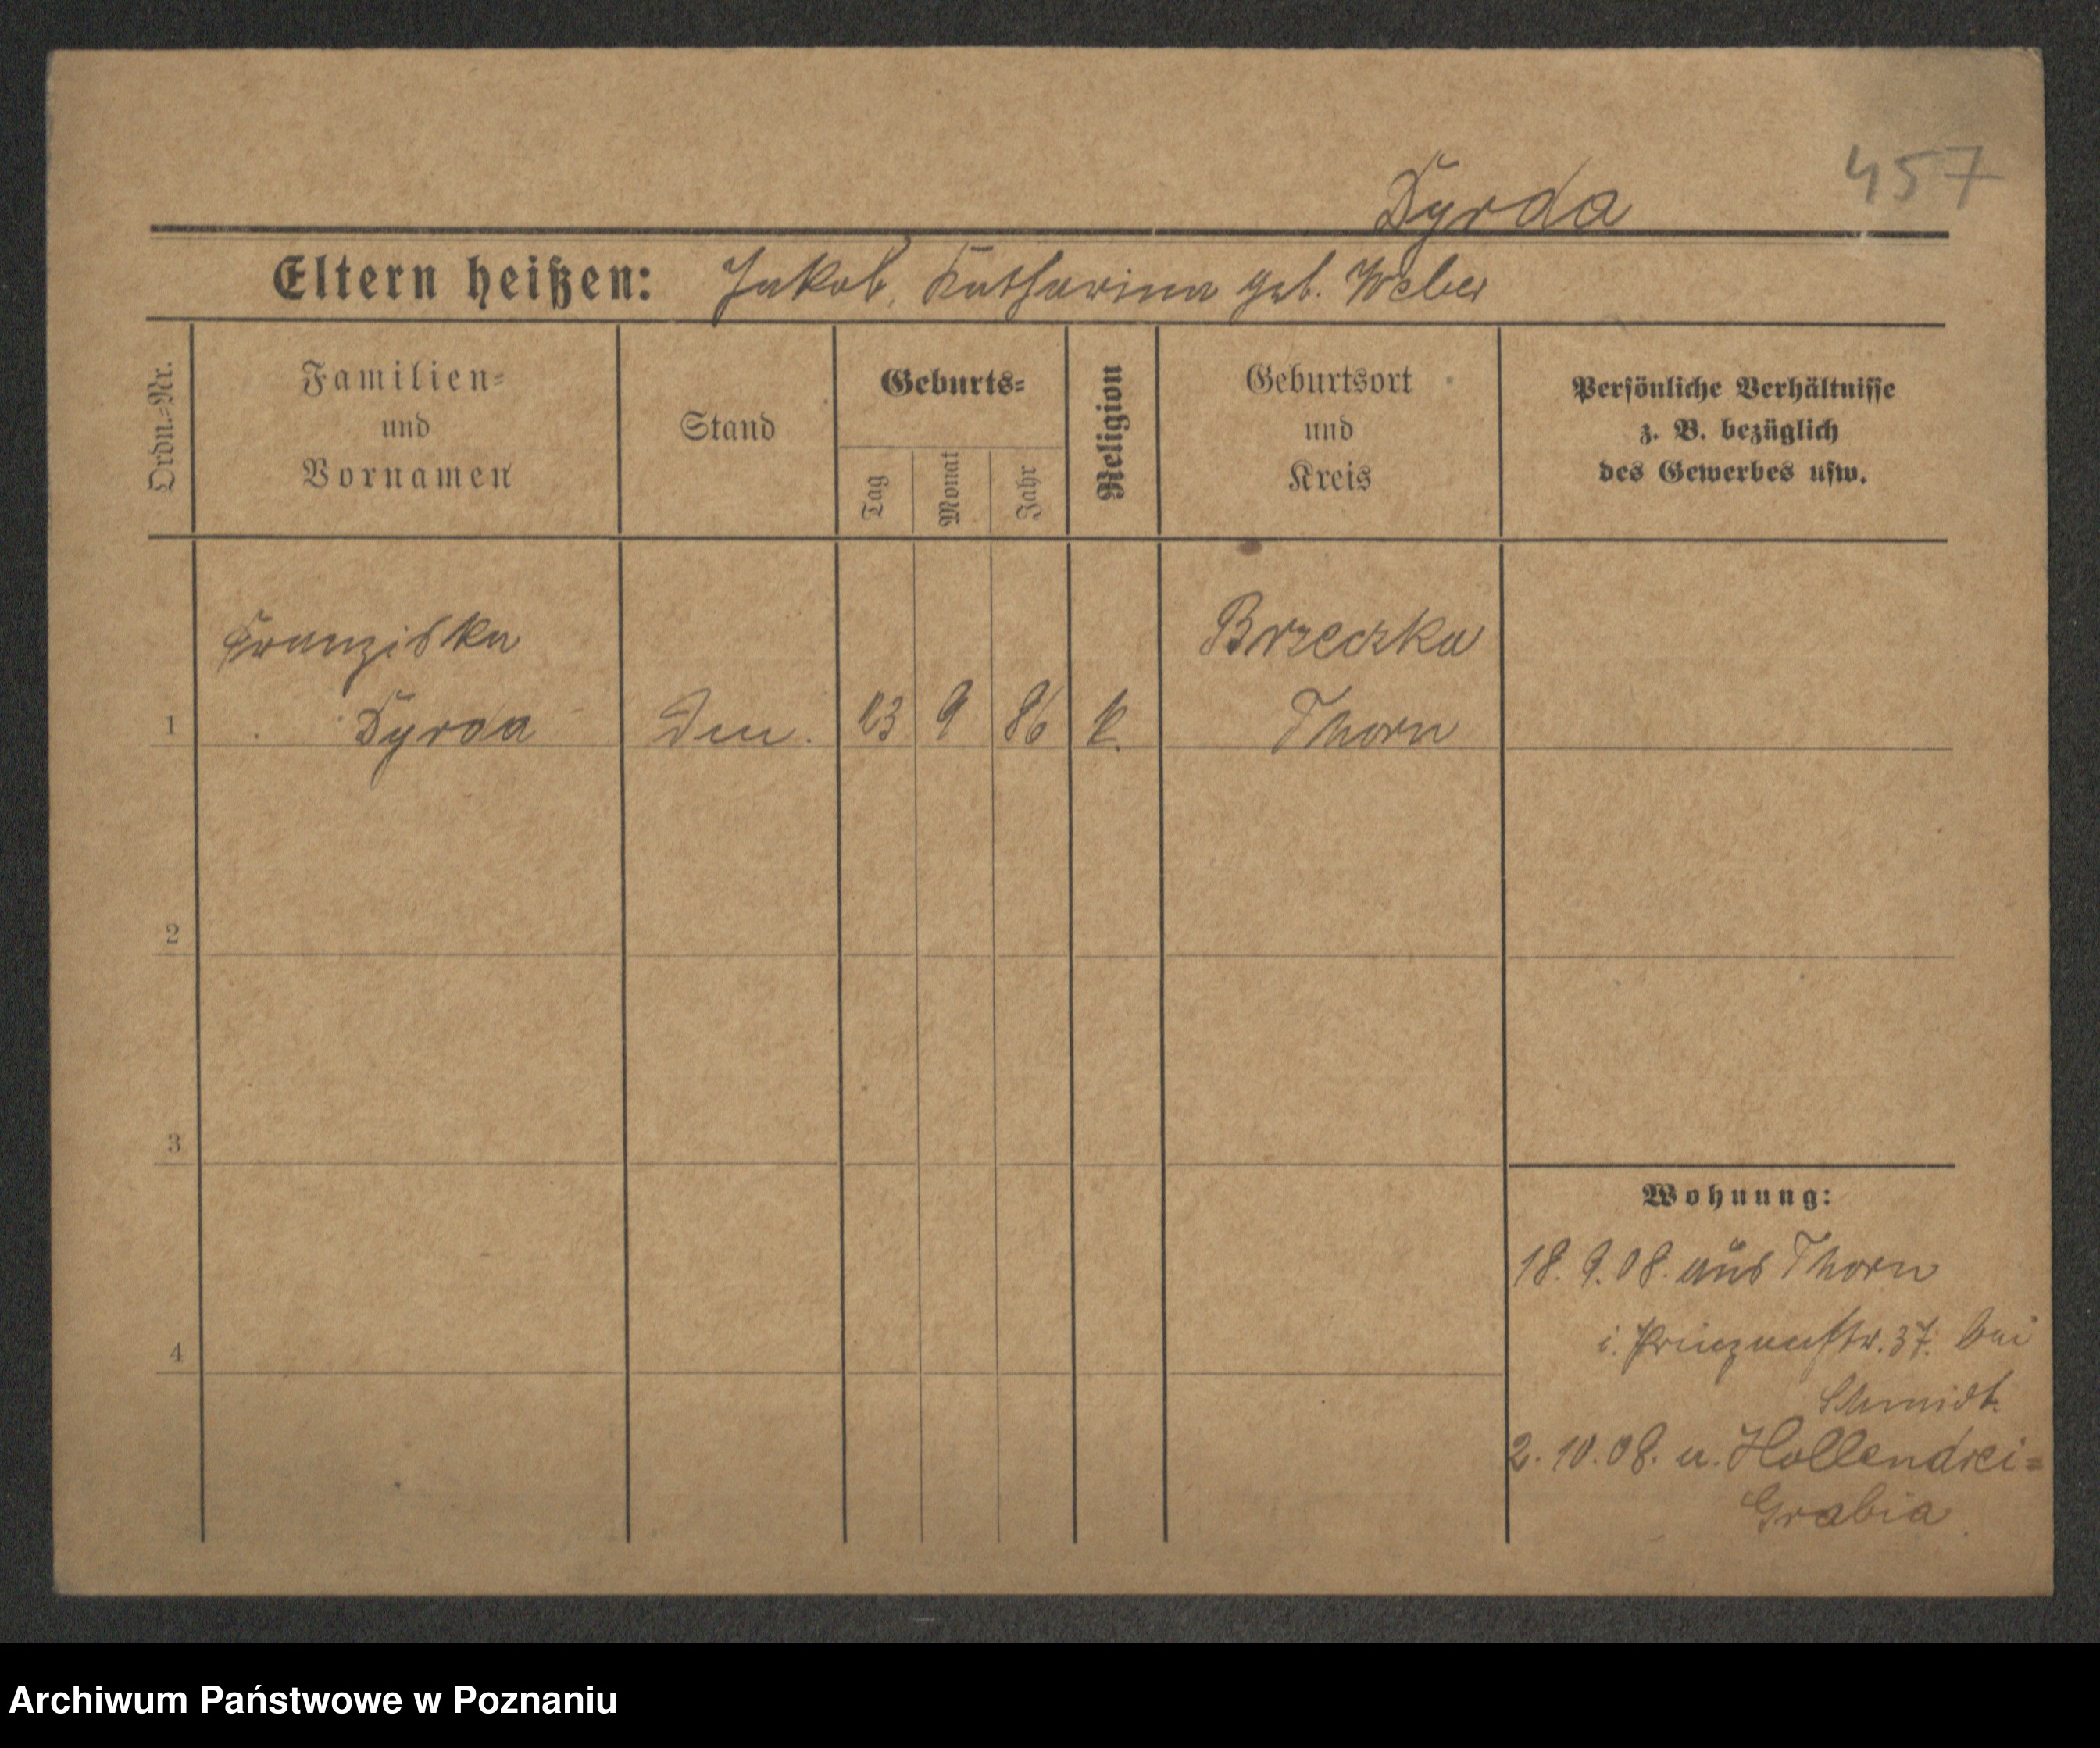 457
Dyrda
Eltern heißen: Jakob, Katharina geb. Weber
Ordn.-Nr.
Familien-
und
Vornamen
Stand
Geburts-
Tag
Monat
Jahr
Religion
Geburtsort
und
Kreis
Persönliche Verhältnisse
z. B. bezüglich
des Gewerbes usw.
Franziska
Brzeczka
1 Dyrda 9 86 k. Thorn
2
3
4
Wohnung:
18. 9. 08. aus Thorn
i. Prinzenstr. 37. bei
Schmidt.
2. 10. 08. n. Hollendrei-
Grabia.
Archiwum Państwowe w Poznaniu